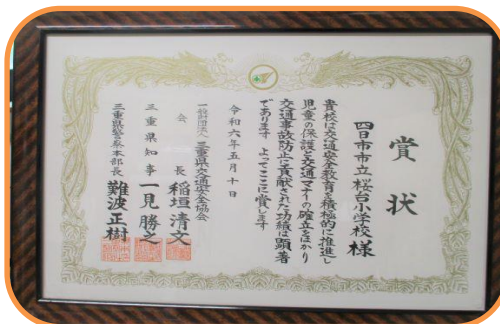 賞状
四日市市立桜台小学校様
貴校は交通安全教育を積極的に推進し
児童の保護と交通マナーの確立をはかり
交通事故防止に貢献された功績は顕著
であります よってここに賞します
令和六年五月十日
一般財団法人 三重県交通安全協会
会長 稲垣清文
三重県知事 一見勝之
三重県警察本部長 難波正樹